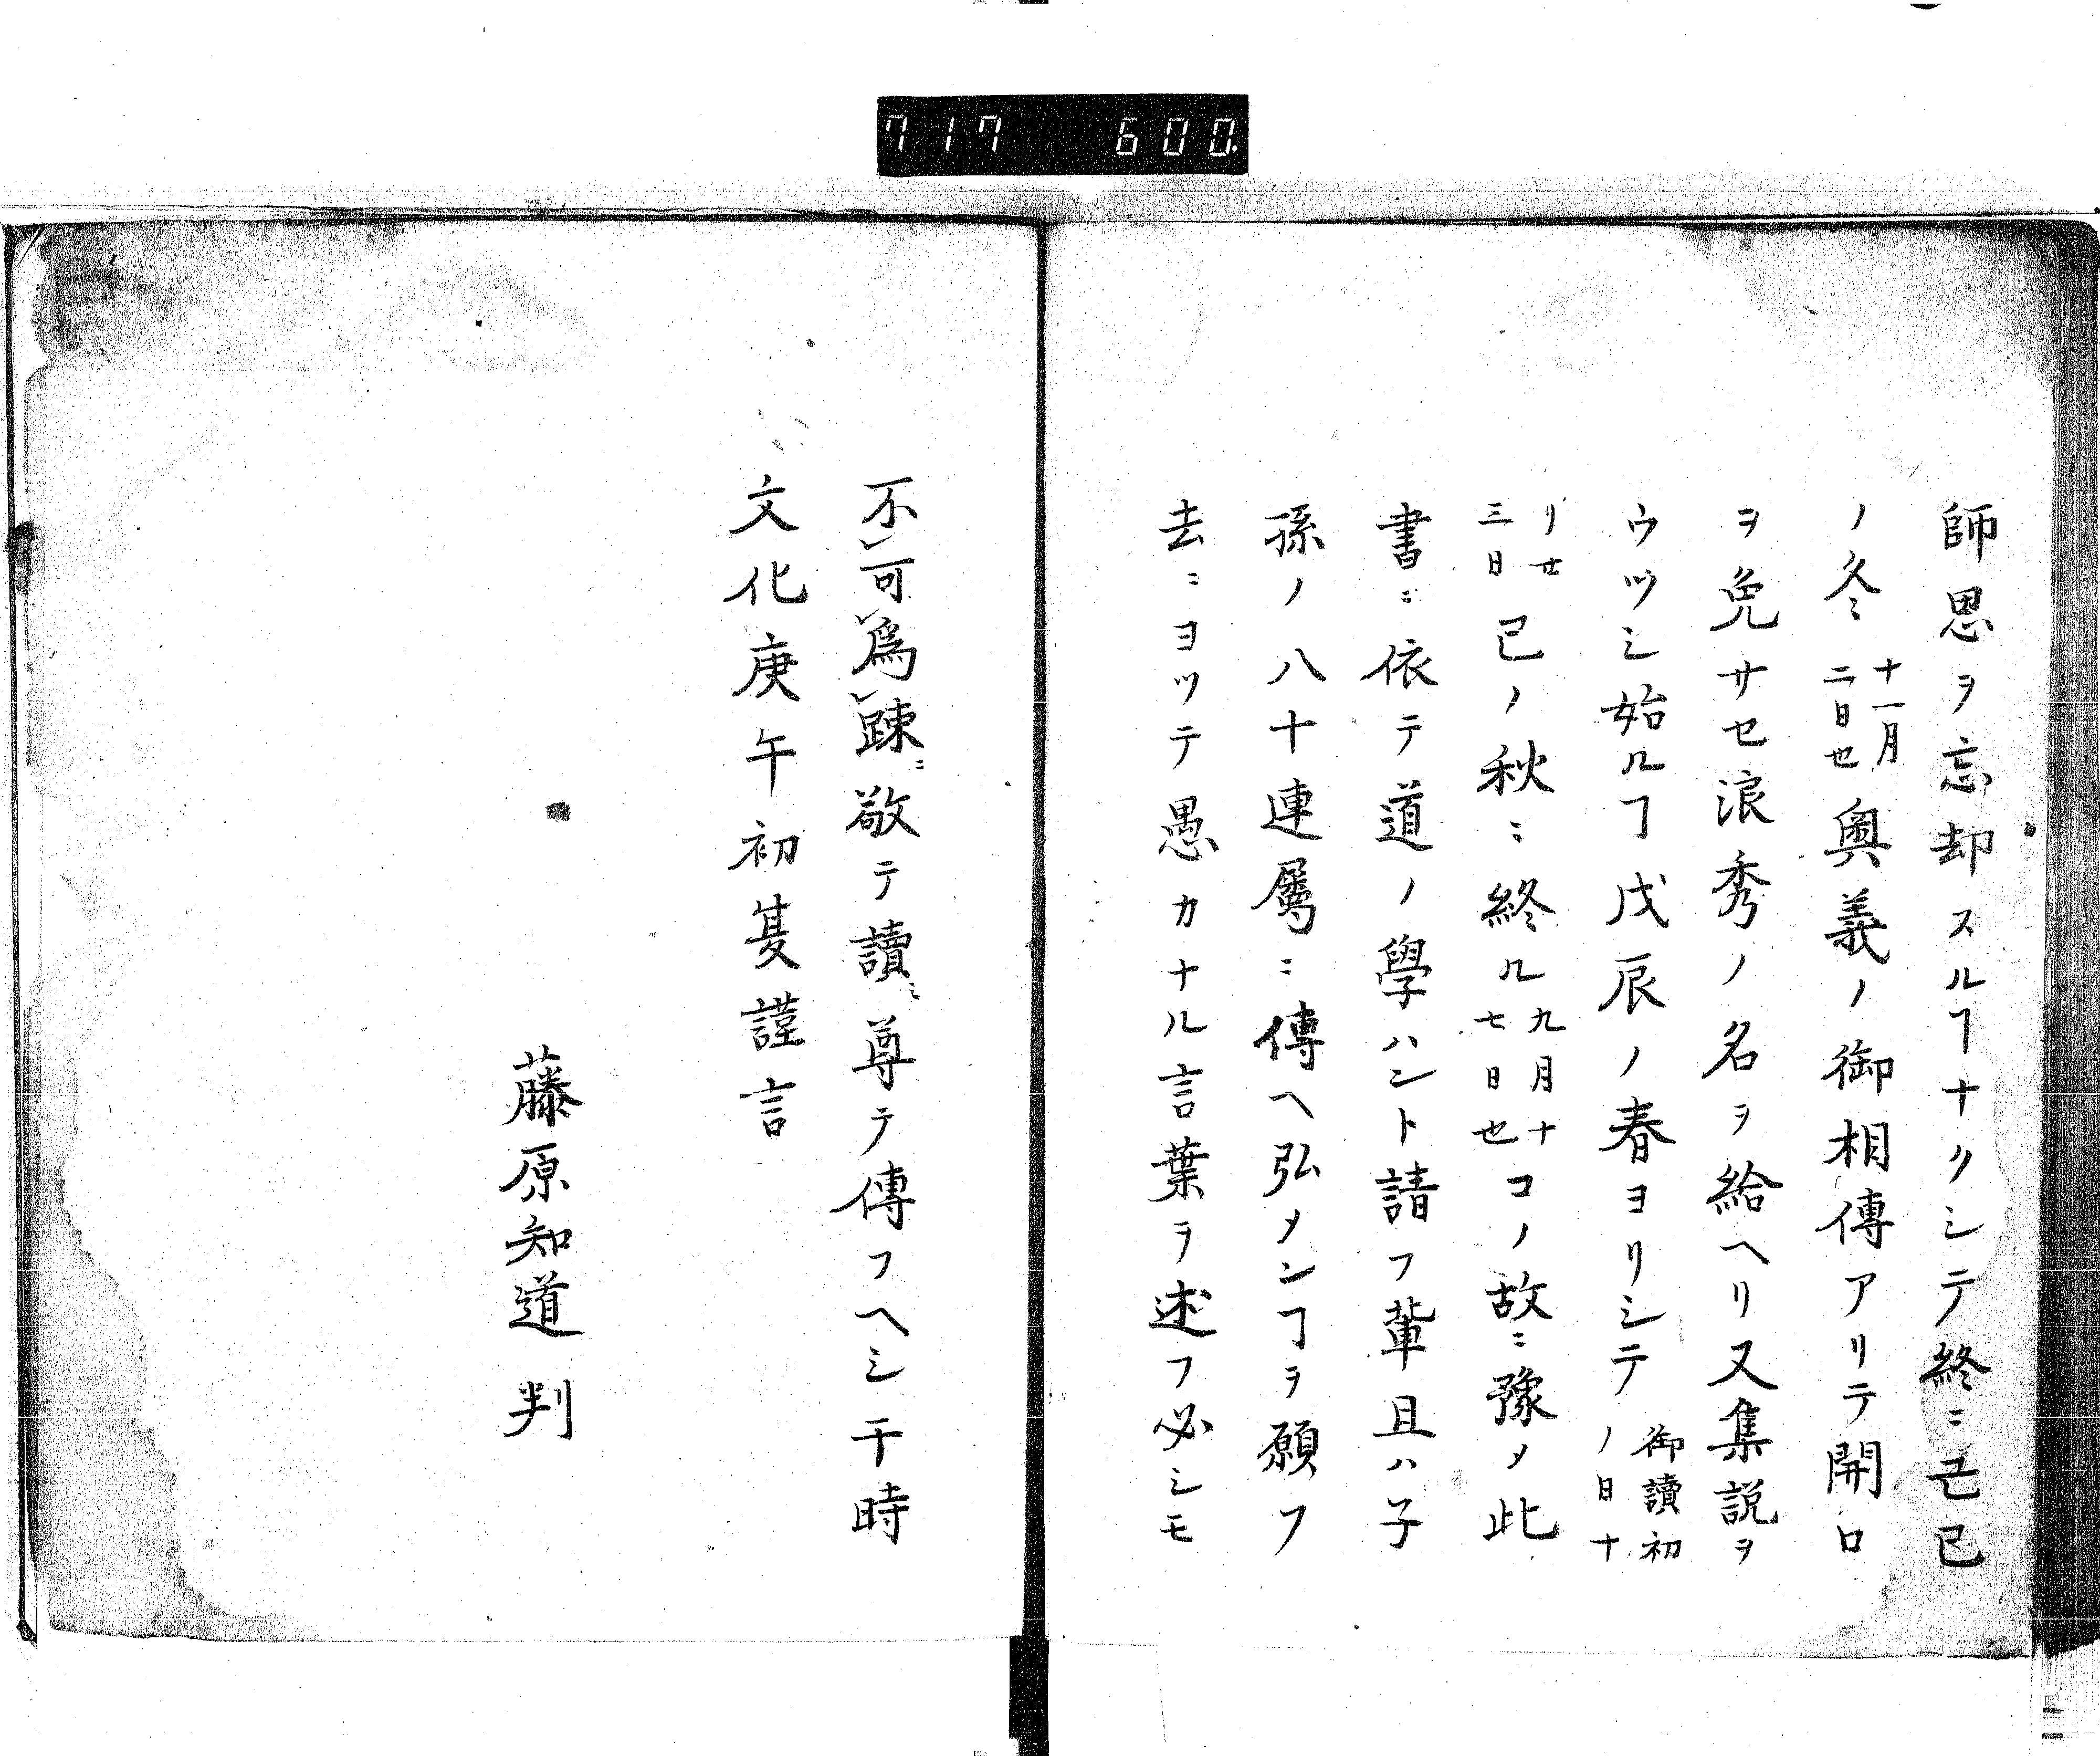 717 600
師恩ヲ忘却スルヿナクシテ終ニ己巳
ノ冬ニ十一月二日也奥義ノ御相傳アリテ開口
ヲ免サセ浪秀ノ名ヲ給ヘリ又集説ヲ
ウツシ始ルヿ戊辰ノ春ヨリシテ御讀初ノ日十
リ廿三日己ノ秋ニ終ル九月十七日也コノ故ニ豫メ此
書ニ依テ道ノ學ハント請フ輩且ハ子
孫ノ八十連屬ニ傳ヘ弘メンヿヲ願フ
去ニヨツテ愚カナル言葉ヲ述フ必シモ
不可為疎ニ敬テ讀ミ尊テ傳フヘシ干時
文化庚午初夏謹言
藤原知道判